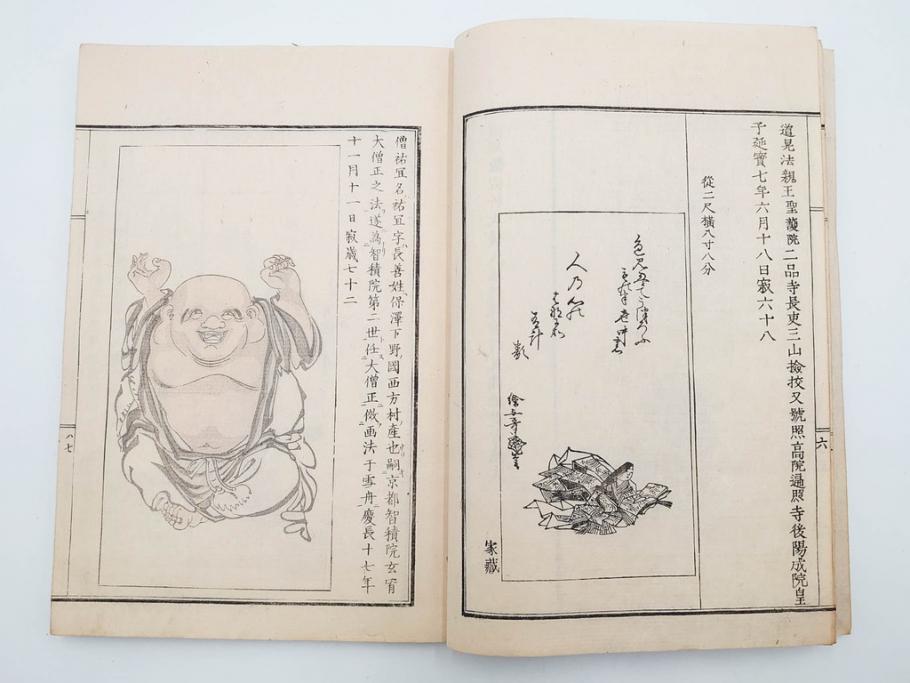 道晃法親王聖護院二品寺長吏三山撿挍又號照高院遍照寺後陽成院皇
子延寶七年六月十八日寂六十八
從二尺橫八寸八分
人乃
家藏
六
僧祐冝名祐冝字長善姓保澤下野國西方村產也嗣京都智積院玄宥
大僧正之法遂為智積院第二世任大僧正倣画法于雪舟慶長十七年
十一月十一日寂歲七十二
八七